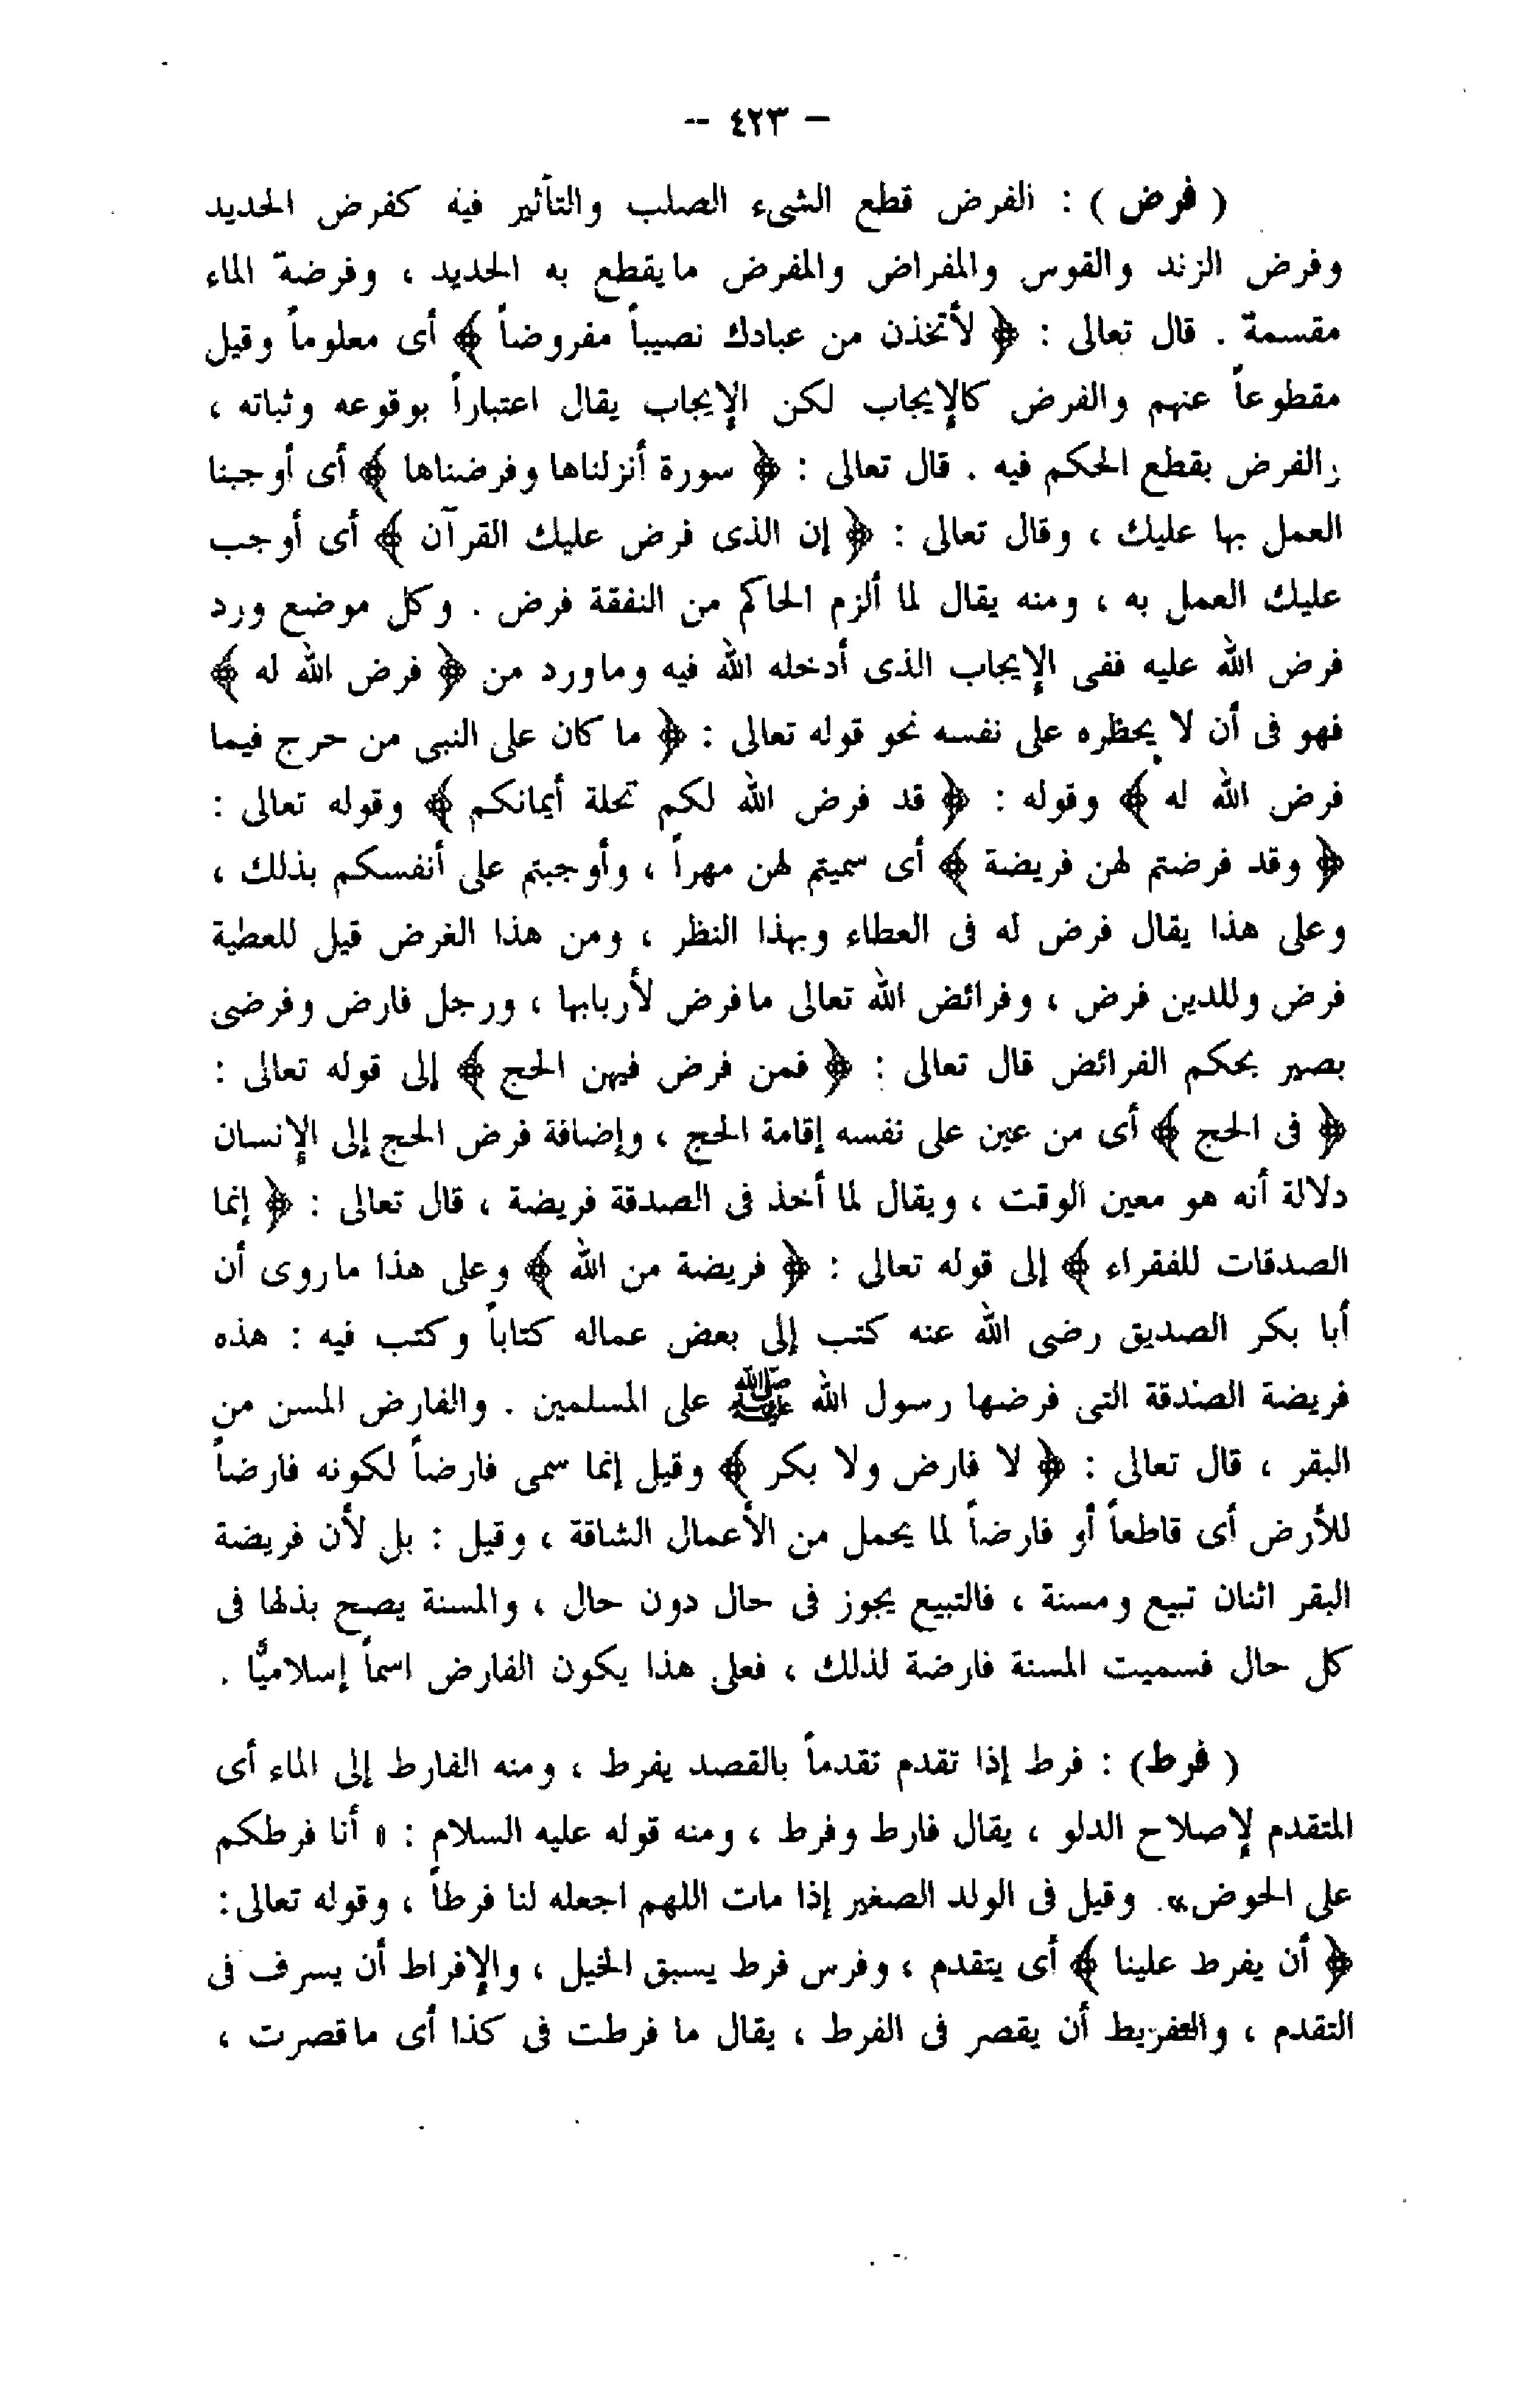 – ٤٢٣ –
( فرض ) : الفرض قطع الشىء الصلب والتأثير فيه كفرض الحديد
وفرض الزند والقوس والمفراض والمفرض مايقطع به الحديد ، وفرضة الماء
مقسمة . قال تعالى : ﴿ لأتخذن من عبادك نصيباً مفروضاً ﴾ أى معلوماً وقيل
مقطوعاً عنهم والفرض كالإيجاب لكن الإيجاب يقال اعتباراً بوقوعه وثباته ،
والفرض بقطع الحكم فيه . قال تعالى : ﴿ سورة أنزلناها وفرضناها ﴾ أى أوجبنا
العمل بها عليك ، وقال تعالى : ﴿ إن الذى فرض عليك القرآن ﴾ أى أوجب
عليك العمل به ، ومنه يقال لما ألزم الحاكم من النفقة فرض . وكل موضع ورد
فرض الله عليه ففى الإيجاب الذى أدخله الله فيه وماورد من ﴿ فرض الله له ﴾
فهو فى أن لا يحظره على نفسه نحو قوله تعالى : ﴿ ما كان على النبى من حرج فيما
فرض الله له ﴾ وقوله : ﴿ قد فرض الله لكم تحلة أيمانكم ﴾ وقوله تعالى :
﴿ وقد فرضتم لهن فريضة ﴾ أى سميتم لهن مهراً ، وأوجبتم على أنفسكم بذلك ،
وعلى هذا يقال فرض له فى العطاء وبهذا النظر ، ومن هذا الغرض قيل للعطية
فرض وللدين فرض ، وفرائض الله تعالى مافرض لأربابها ، ورجل فارض وفرضى
بصير بحكم الفرائض قال تعالى : ﴿ فمن فرض فيهن الحج ﴾ إلى قوله تعالى :
﴿ فى الحج ﴾ أى من عين على نفسه إقامة الحج ، وإضافة فرض الحج إلى الإنسان
دلالة أنه هو معين الوقت ، ويقال لما أخذ فى الصدقة فريضة ، قال تعالى : ﴿ إنما
الصدقات للفقراء ﴾ إلى قوله تعالى : ﴿ فريضة من الله ﴾ وعلى هذا ماروى أن
أبا بكر الصديق رضى الله عنه كتب إلى بعض عماله كتاباً وكتب فيه : هذه
فريضة الصدقة التى فرضها رسول الله ﷺ على المسلمين . والفارض المسن من
البقر ، قال تعالى : ﴿ لا فارض ولا بكر ﴾ وقيل إنما سمى فارضاً لكونه فارضاً
للأرض أى قاطعاً أو فارضاً لما يحمل من الأعمال الشاقة ، وقيل : بل لأن فريضة
البقر اثنان تبيع ومسنة ، فالتبيع يجوز فى حال دون حال ، والمسنة يصح بذلها فى
كل حال فسميت المسنة فارضة لذلك ، فعلى هذا يكون الفارض اسماً إسلاميًّا .
( فرط) : فرط إذا تقدم تقدماً بالقصد يفرط ، ومنه الفارط إلى الماء أى
المتقدم لإصلاح الدلو ، يقال فارط وفرط ، ومنه قوله عليه السلام : « أنا فرطكم
على الحوض». وقيل فى الولد الصغير إذا مات اللهم اجعله لنا فرطاً ، وقوله تعالى:
﴿ أن يفرط علينا ﴾ أى يتقدم ، وفرس فرط يسبق الخيل ، والإفراط أن يسرف فى
التقدم ، والتفريط أن يقصر فى الفرط ، يقال ما فرطت فى كذا أى ماقصرت ،